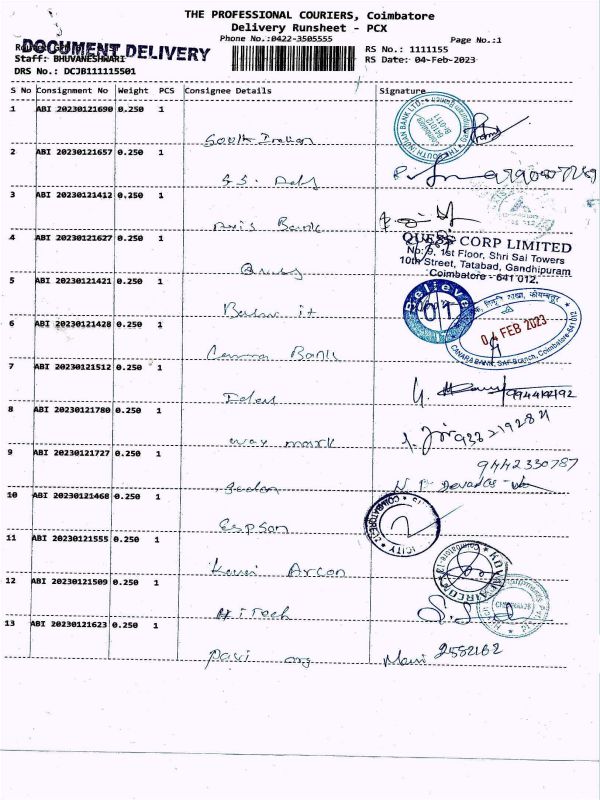 THE PROFESSIONAL COURIERS, Coimbatore
Delivery Runsheet - PCX
Phone No.:0422-3505555
Page No.:1
DOCUMENT DELIVERY
RS No.: 1111155
Staff: BHUVANESHWARI
RS Date: 04-Feb-2023
DRS No.: DCJB111115501
S No Consignment No Weight PCS Consignee Details Signature
1 ABI 20230121690 0.250 1
South Indian
2 ABI 20230121657 0.250 1
3 ABI 20230121412 0.250 1
Axis Bank
4 ABI 20230121627 0.250 1
QUESS CORP LIMITED
No: 9, 1st Floor, Shri Sai Towers
10th Street, Tatabad, Gandhipuram
Coimbatore - 641 012.
Quess
5 ABI 20230121421 0.250 1
Believe
01
6 ABI 20230121428 0.250 1
04 FEB 2023
CANARA BANK
Canara Bank
7 ABI 20230121512 0.250 1
8 ABI 20230121780 0.250 1
way mark
9 ABI 20230121727 0.250 1
9442330787
10 ABI 20230121468 0.250 1
11 ABI 20230121555 0.250 1
KOVAI AIRCON
12 ABI 20230121509 0.250 1
HiTech
13 ABI 20230121623 0.250 1
Mani 2552162